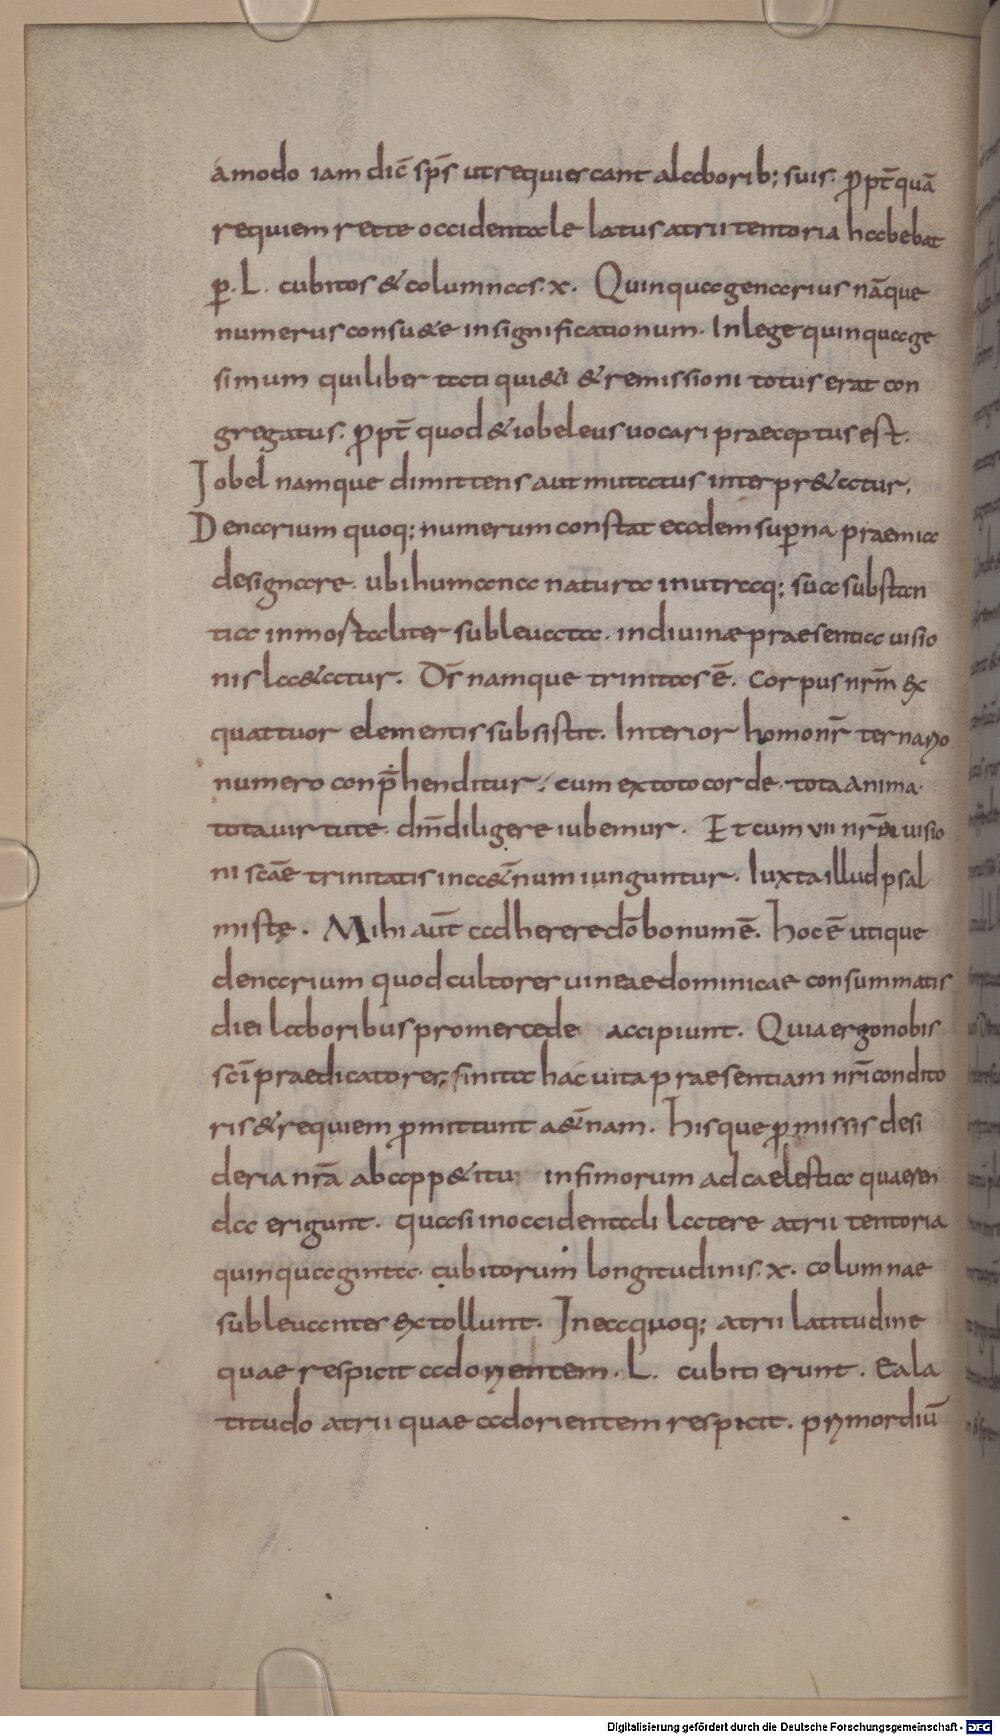 amodo iam dic̄ sp̄s ut requiescant a laborib; suis. ꝓpt̄ quā
requiem recte occidentale latus atrii tentoria habebat
ꝑ. L. cubitos & columnas. x. Quinquagenarius nāque
numerus consu&e in significationum. In lege quinquage
simum qui liber tati qui&i & remissioni totus erat con
gregatus. ꝓpt̄ quod & iobeleus uocari praeceptus est.
Iobel namque dimittens aut mutatus interpr&atur.
Denarium quoq; numerum constat eadem suꝑna praemia
designare. ubi humana natura in utraq; sua substan
tia inmostaliter subleuata. in diuinae praesentia uisio
nis la&atur. Ds̄ namque trinitas ē. Corpus nr̄m ex
quattuor elementis subsistit. Interior homo nr̄ ternario
numero conp̄henditur. cum ex toto corde. tota anima.
tota uirtute. dm̄ diligere iubemur. Et cum VII nr̄a uisio
ni scāe trinitatis in a&̄num iunguntur. Iuxta illud psal
mistę. Mihi aūt adherere dō bonum ē. hoc ē utique
denarium quod cultores uineae dominicae consummatis
diei laboribus pro mercede accipiunt. Quia ergo nobis
scī praedicatores, finita hac uita praesentiam nr̄i condito
ris & requiem ꝓmittunt a&̄nam. hisque ꝓmissis desi
deria nr̄a ab app&itu infimorum ad caelestia quaeren
da erigunt. quasi in occidentali latere atrii tentoria
quinquaginta. cubitorum longitudinis. x. columnae
subleuanter extollunt. In ea quoq; atrii latitudine
quae respicit ad orientem. L. cubiti erunt. Ea la
titudo atrii quae ad orientem respicit. primordiū
Digitalisierung gefördert durch die Deutsche Forschungsgemeinschaft - DFG